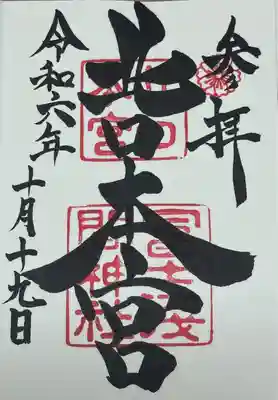 参拝
北口本宮
冨士浅
間神社
令和六年
十月十九日